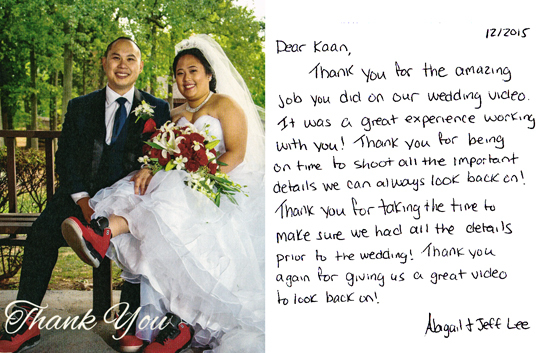 Thank You
12/2015
Dear Kaan,
Thank you for the amazing
job you did on our wedding video.
It was a great experience working
with you! Thank you for being
on time to shoot all the important
details we can always look back on!
Thank you for taking the time to
make sure we had all the details
prior to the wedding! Thank you
again for giving us a great video
to look back on!
Abgail + Jeff Lee